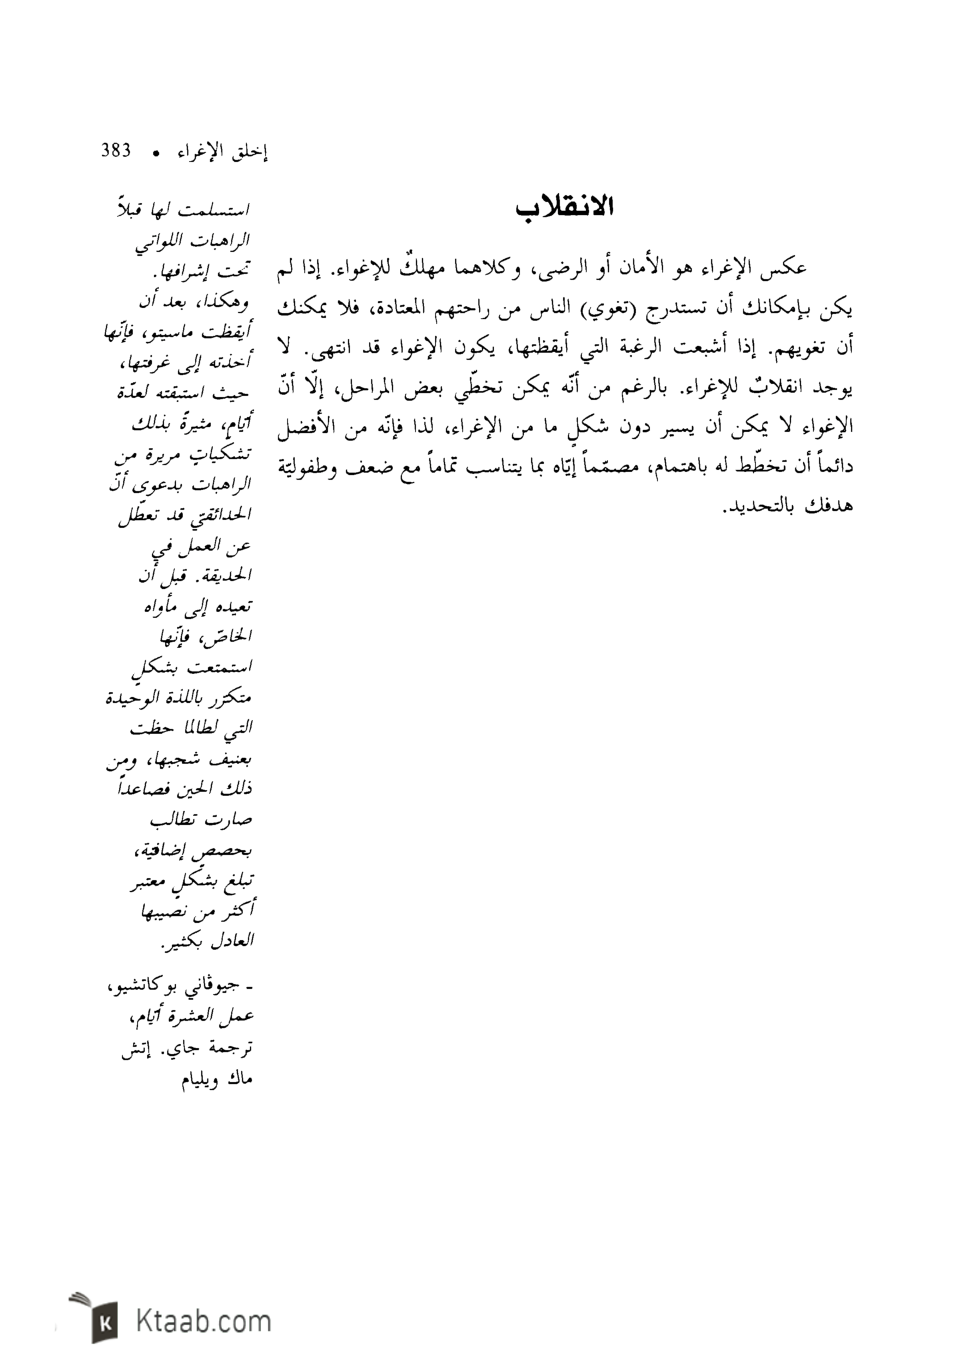 إخلق الإغراء • 383
الانقلاب
عكس الإغراء هو الأمان أو الرضى، وكلاهما مهلكٌ للإغواء. إذا لم
يكن بإمكانك أن تستدرج (تغوي) الناس من راحتهم المعتادة، فلا يمكنك
أن تغويهم. إذا أشبعت الرغبة التي أيقظتها، يكون الإغواء قد انتهى. لا
يوجد انقلابٌ للإغراء. بالرغم من أنّه يمكن تخطّي بعض المراحل، إلّا أنّ
الإغواء لا يمكن أن يسير دون شكلٍ ما من الإغراء، لذا فإنّه من الأفضل
دائماً أن تخطّط له باهتمام، مصمّماً إيّاه بما يتناسب تماماً مع ضعف وطفوليّة
هدفك بالتحديد.
استسلمت لها قبلاً
الراهبات اللواتي
تحت إشرافها.
وهكذا، بعد أن
أيقظت ماسيتو، فإنّها
أخذته إلى غرفتها،
حيث استبقته لعدّة
أيّامٍ، مثيرةً بذلك
تشكّياتٍ مريرة من
الراهبات بدعوى أنّ
الحدائقيّ قد تعطّل
عن العمل في
الحديقة. قبل أن
تعيده إلى مأواه
الخاصّ، فإنّها
استمتعت بشكلٍ
متكرّر باللذة الوحيدة
التي لطالما حظت
بعنيف شجبها، ومن
ذلك الحين فصاعداً
صارت تطالب
بحصصٍ إضافية،
تبلغ بشكلٍ معتبر
أكثر من نصيبها
العادل بكثير.
ـ جيوڤاني بوكاتشيو،
عمل العشرة أيّام،
ترجمة جاي. إتش
ماك ويليام
Ktaab.com